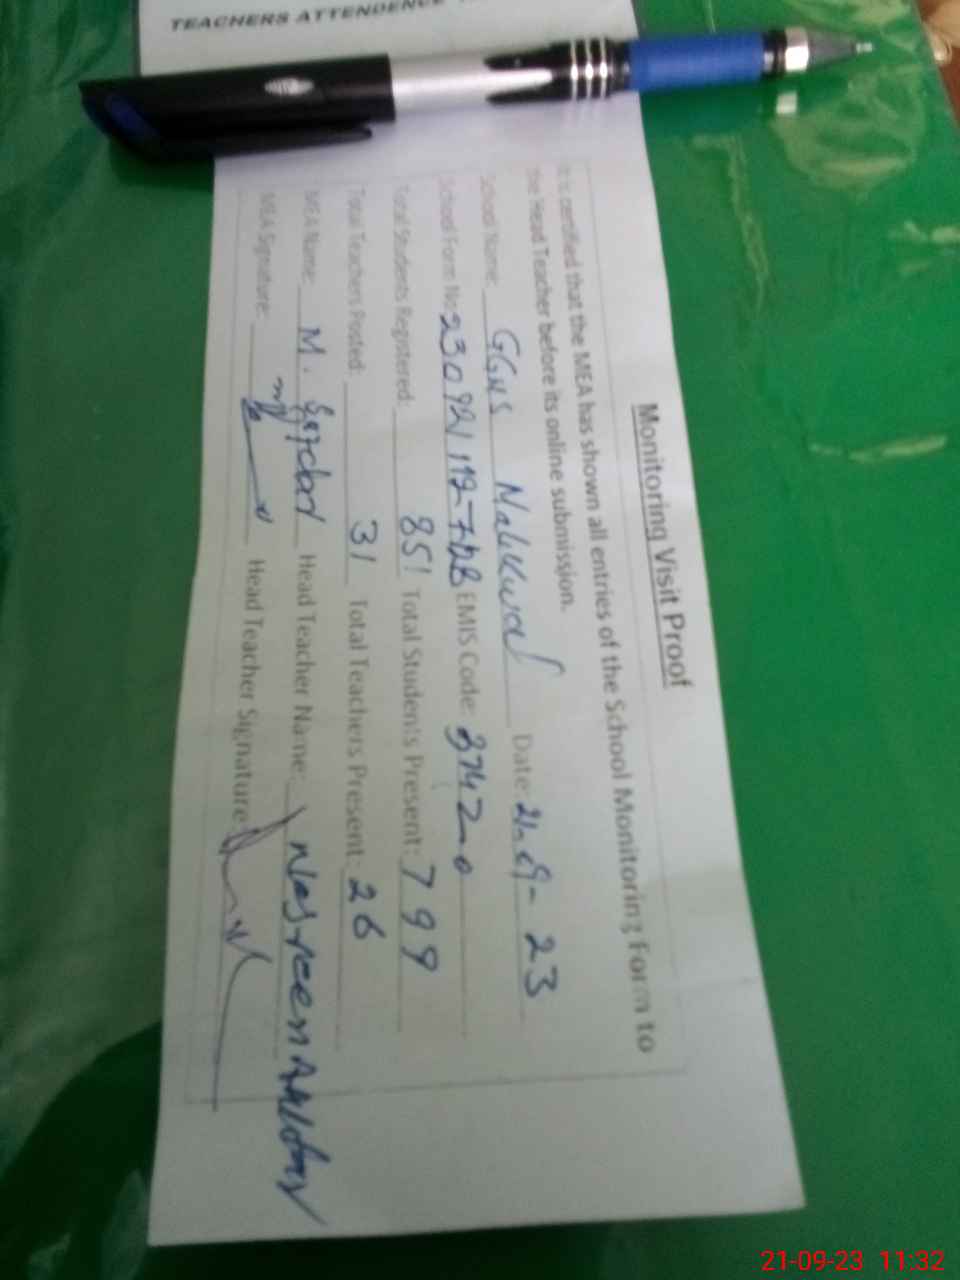 TEACHERS ATTENDENCE
Monitoring Visit Proof
It is certified that the MEA has shown all entries of the School Monitoring Form to
the Head Teacher before its online submission.
School Name: GGHS Malikwal Date: 21-09-23
School Form No: EMIS Code: 37420
Total Students Registered: 851 Total Students Present: 799
Total Teachers Posted: 31 Total Teachers Present: 26
MEA Name: M. Head Teacher Name: Nasreen Akhtar
MEA Signature: Head Teacher Signature:
21-09-23 11:32